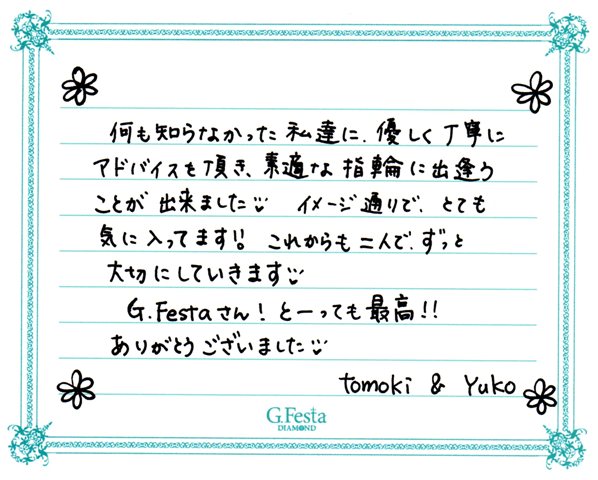 何も知らなかった私達に、優しく丁寧に
アドバイスも頂き、素適な指輪に出逢う
ことが出来ました
イメージ通りで、とても
気に入ってます!! これからも二人で、ずっと
大切にしていきます
G.Festaさん! とーっても最高!!
ありがとうございました
tomoki & Yuko
G.Festa
DIAMOND